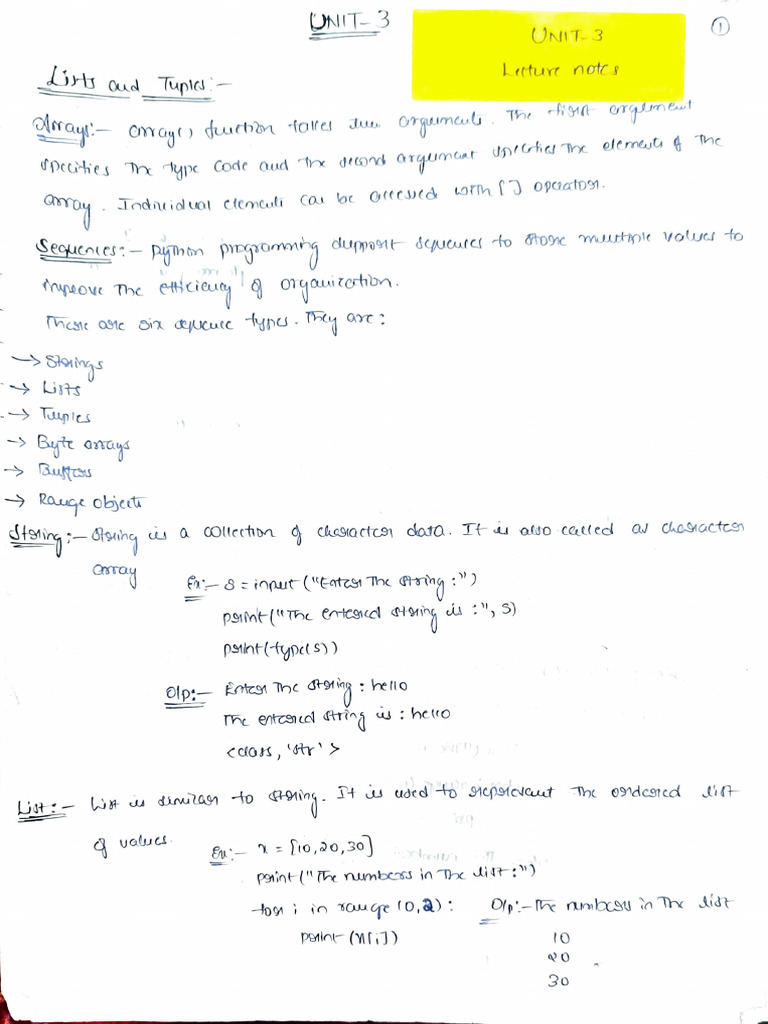 UNIT-3
①
UNIT-3
Lecture notes
Lists and Tuples:-
Arrays:- array() function takes two arguments. The first argument
specifies the type code and the second argument specifies the elements of the
array. Individual elements can be accessed with [] operator.
Sequences:- python programming support sequences to store multiple values to
improve the efficiency of organization.
There are six sequence types. They are:
→ Strings
→ Lists
→ Tuples
→ Byte arrays
→ Buffers
→ Range objects
String:- String is a collection of character data. It is also called as character
array
Ex:- S = input ("Enter The String :")
print("The entered string is :", S)
print(type(s))
O/p:- Enter The string : hello
The entered string is : hello
<class, 'str'>
List:- List is similar to string. It is used to represent the ordered list
of values.
Ex:- x = [10,20,30]
print("The numbers in The list :")
for i in range (0,2) : O/p:- The numbers in The list
print (x[i]) 10
20
30